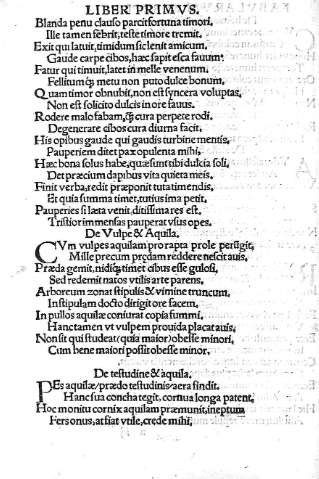 LIBER PRIMVS.
Blanda penu clauso parcit fortuna timori,
Ille tamen febrit, teste timore tremit.
Exit qui latuit, timidum sic lenit amicum,
Gaude carpe cibos, hæc sapit esca fauum.
Fatur qui timuit, latet in melle venenum,
Fellitum metu non puto dulce bonum.
Quam timor obnubit, non est syncera voluptas,
Non est solicito dulcis in ore fauus.
Rodere malo fabam, cura perpete rodi.
Degenerare cibos cura diurna facit.
His opibus gaude qui gaudis turbine mentis,
Pauperiem ditet pax opulenta mihi,
Hæc bona solus habe, quæ sunt tibi dulcia soli,
Det præcium dapibus vita quieta meis.
Finit verba, redit præponit tuta timendis,
Et quia summa timet, tutius ima petit.
Pauperies si læta venit, ditissima res est.
Tristior immensas pauperat vsus opes.
De Vulpe & Aquila.
CVm vulpes aquilam pro rapta prole perurgit,
Mille precum prędam reddere nescit auis,
Præda gemit, timet cibus esse gulosi,
Sed redemit natos vtilis arte parens,
Arboreum zonat stipulis & vimine truncum,
In stipulam docto dirigit ore facem.
In pullos aquilæ coniurat copia fummi.
Hanc tamen vt vulpem prouida placat auis,
Non sit qui studeat quia maior obesse minori,
Cum bene maiori possit obesse minor.
De testudine & aquila.
PEs aquilæ prædo testudinis aera findit.
Hanc sua concha tegit, cornua longa patent,
Hoc monitu cornix aquilam præmunit, ineptum
Fers onus, at fiat vtile, crede mihi,